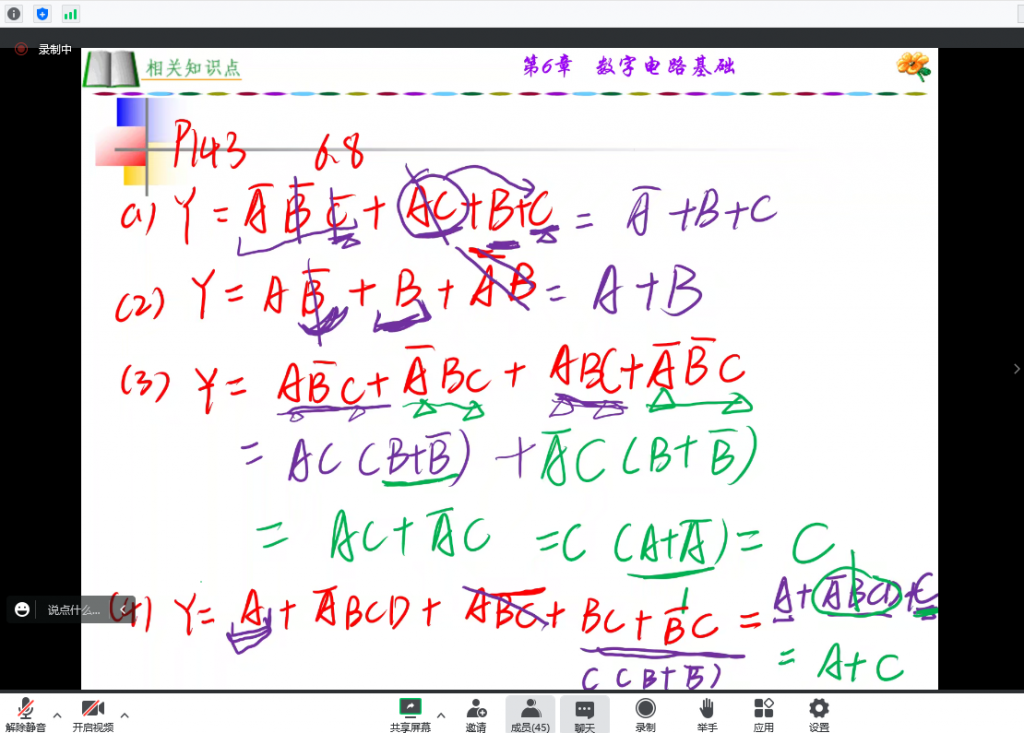 录制中
相关知识点 第6章 数字电路基础
P143 6.8
(1) Y = A̅ B̅ C̅ + AC + B + C = A̅ + B + C
(2) Y = A B̅ + B + A̅ B = A + B
(3) Y = A B̅ C + A̅ B C + A B C + A̅ B̅ C
= A C ( B + B̅ ) + A̅ C ( B + B̅ )
= A C + A̅ C = C ( A + A̅ ) = C
说点什么...
(4) Y = A + A̅ B C D + A B̅ C̅ + B C + B̅ C = A + A̅ B C D + C
C ( B + B̅ ) = A + C
解除静音 开启视频 共享屏幕 邀请 成员(45) 聊天 录制 举手 应用 设置